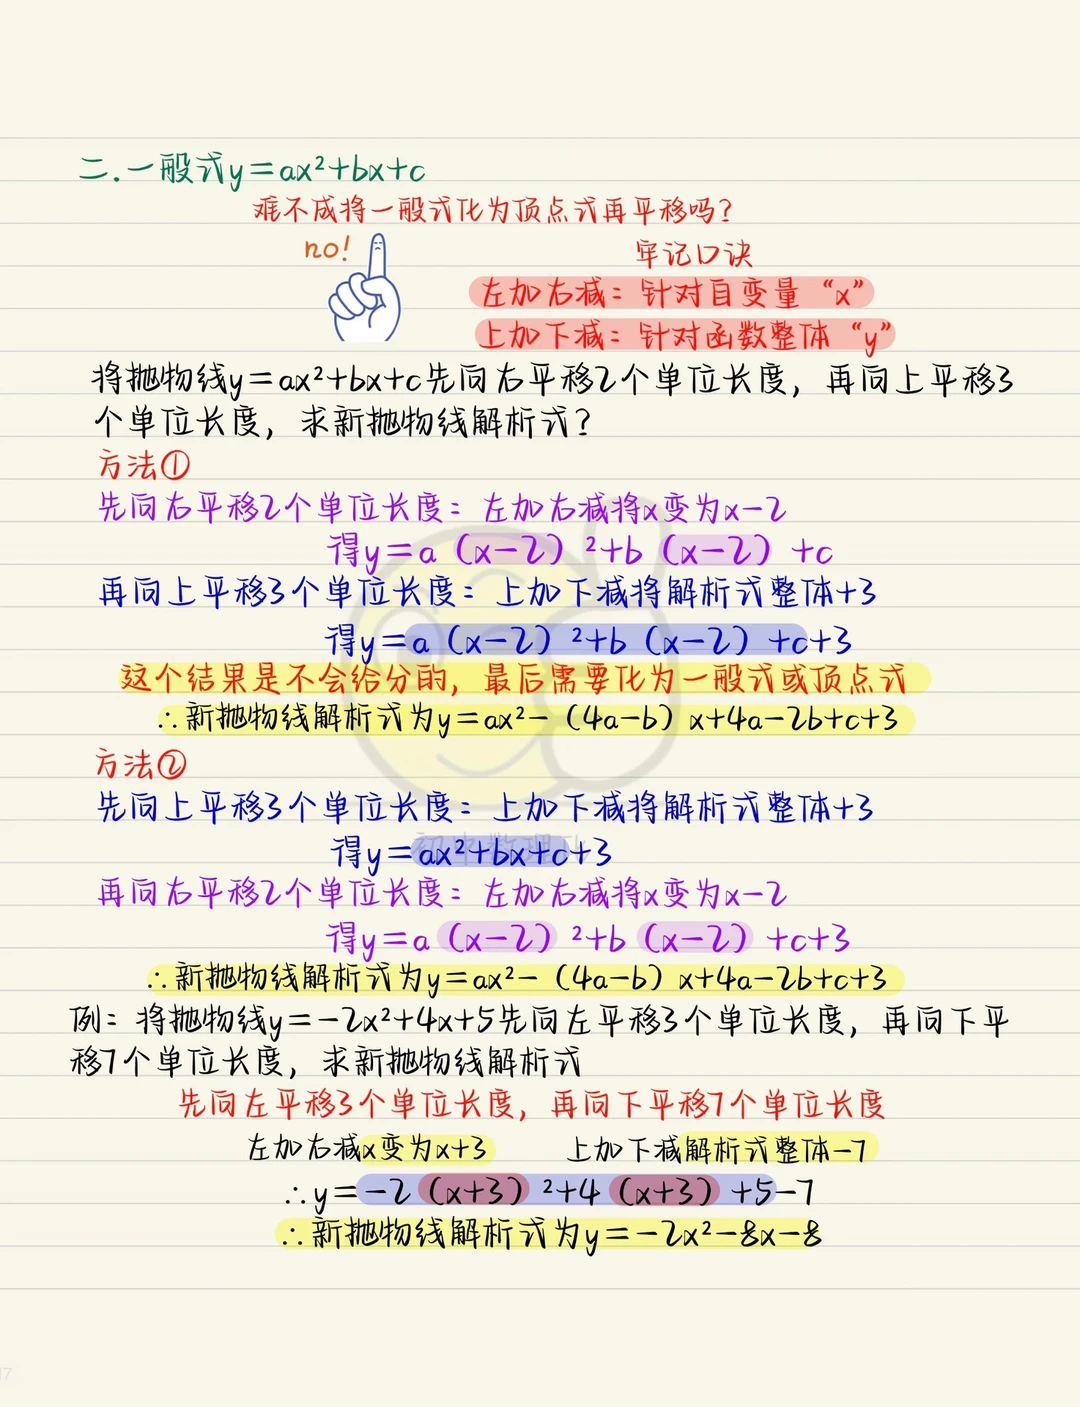 二.一般式y=ax²+bx+c
难不成将一般式化为顶点式再平移吗?
no!
牢记口诀
左加右减：针对自变量“x”
上加下减：针对函数整体“y”
将抛物线y=ax²+bx+c先向右平移2个单位长度，再向上平移3
个单位长度，求新抛物线解析式?
方法①
先向右平移2个单位长度：左加右减将x变为x-2
得y=a（x-2）²+b（x-2）+c
再向上平移3个单位长度：上加下减将解析式整体+3
得y=a（x-2）²+b（x-2）+c+3
这个结果是不会给分的，最后需要化为一般式或顶点式
∴新抛物线解析式为y=ax²-（4a-b）x+4a-2b+c+3
方法②
先向上平移3个单位长度：上加下减将解析式整体+3
得y=ax²+bx+c+3
再向右平移2个单位长度：左加右减将x变为x-2
得y=a（x-2）²+b（x-2）+c+3
∴新抛物线解析式为y=ax²-（4a-b）x+4a-2b+c+3
例：将抛物线y=-2x²+4x+5先向左平移3个单位长度，再向下平
移7个单位长度，求新抛物线解析式
先向左平移3个单位长度，再向下平移7个单位长度
左加右减x变为x+3 上加下减解析式整体-7
∴y=-2（x+3）²+4（x+3）+5-7
∴新抛物线解析式为y=-2x²-8x-8